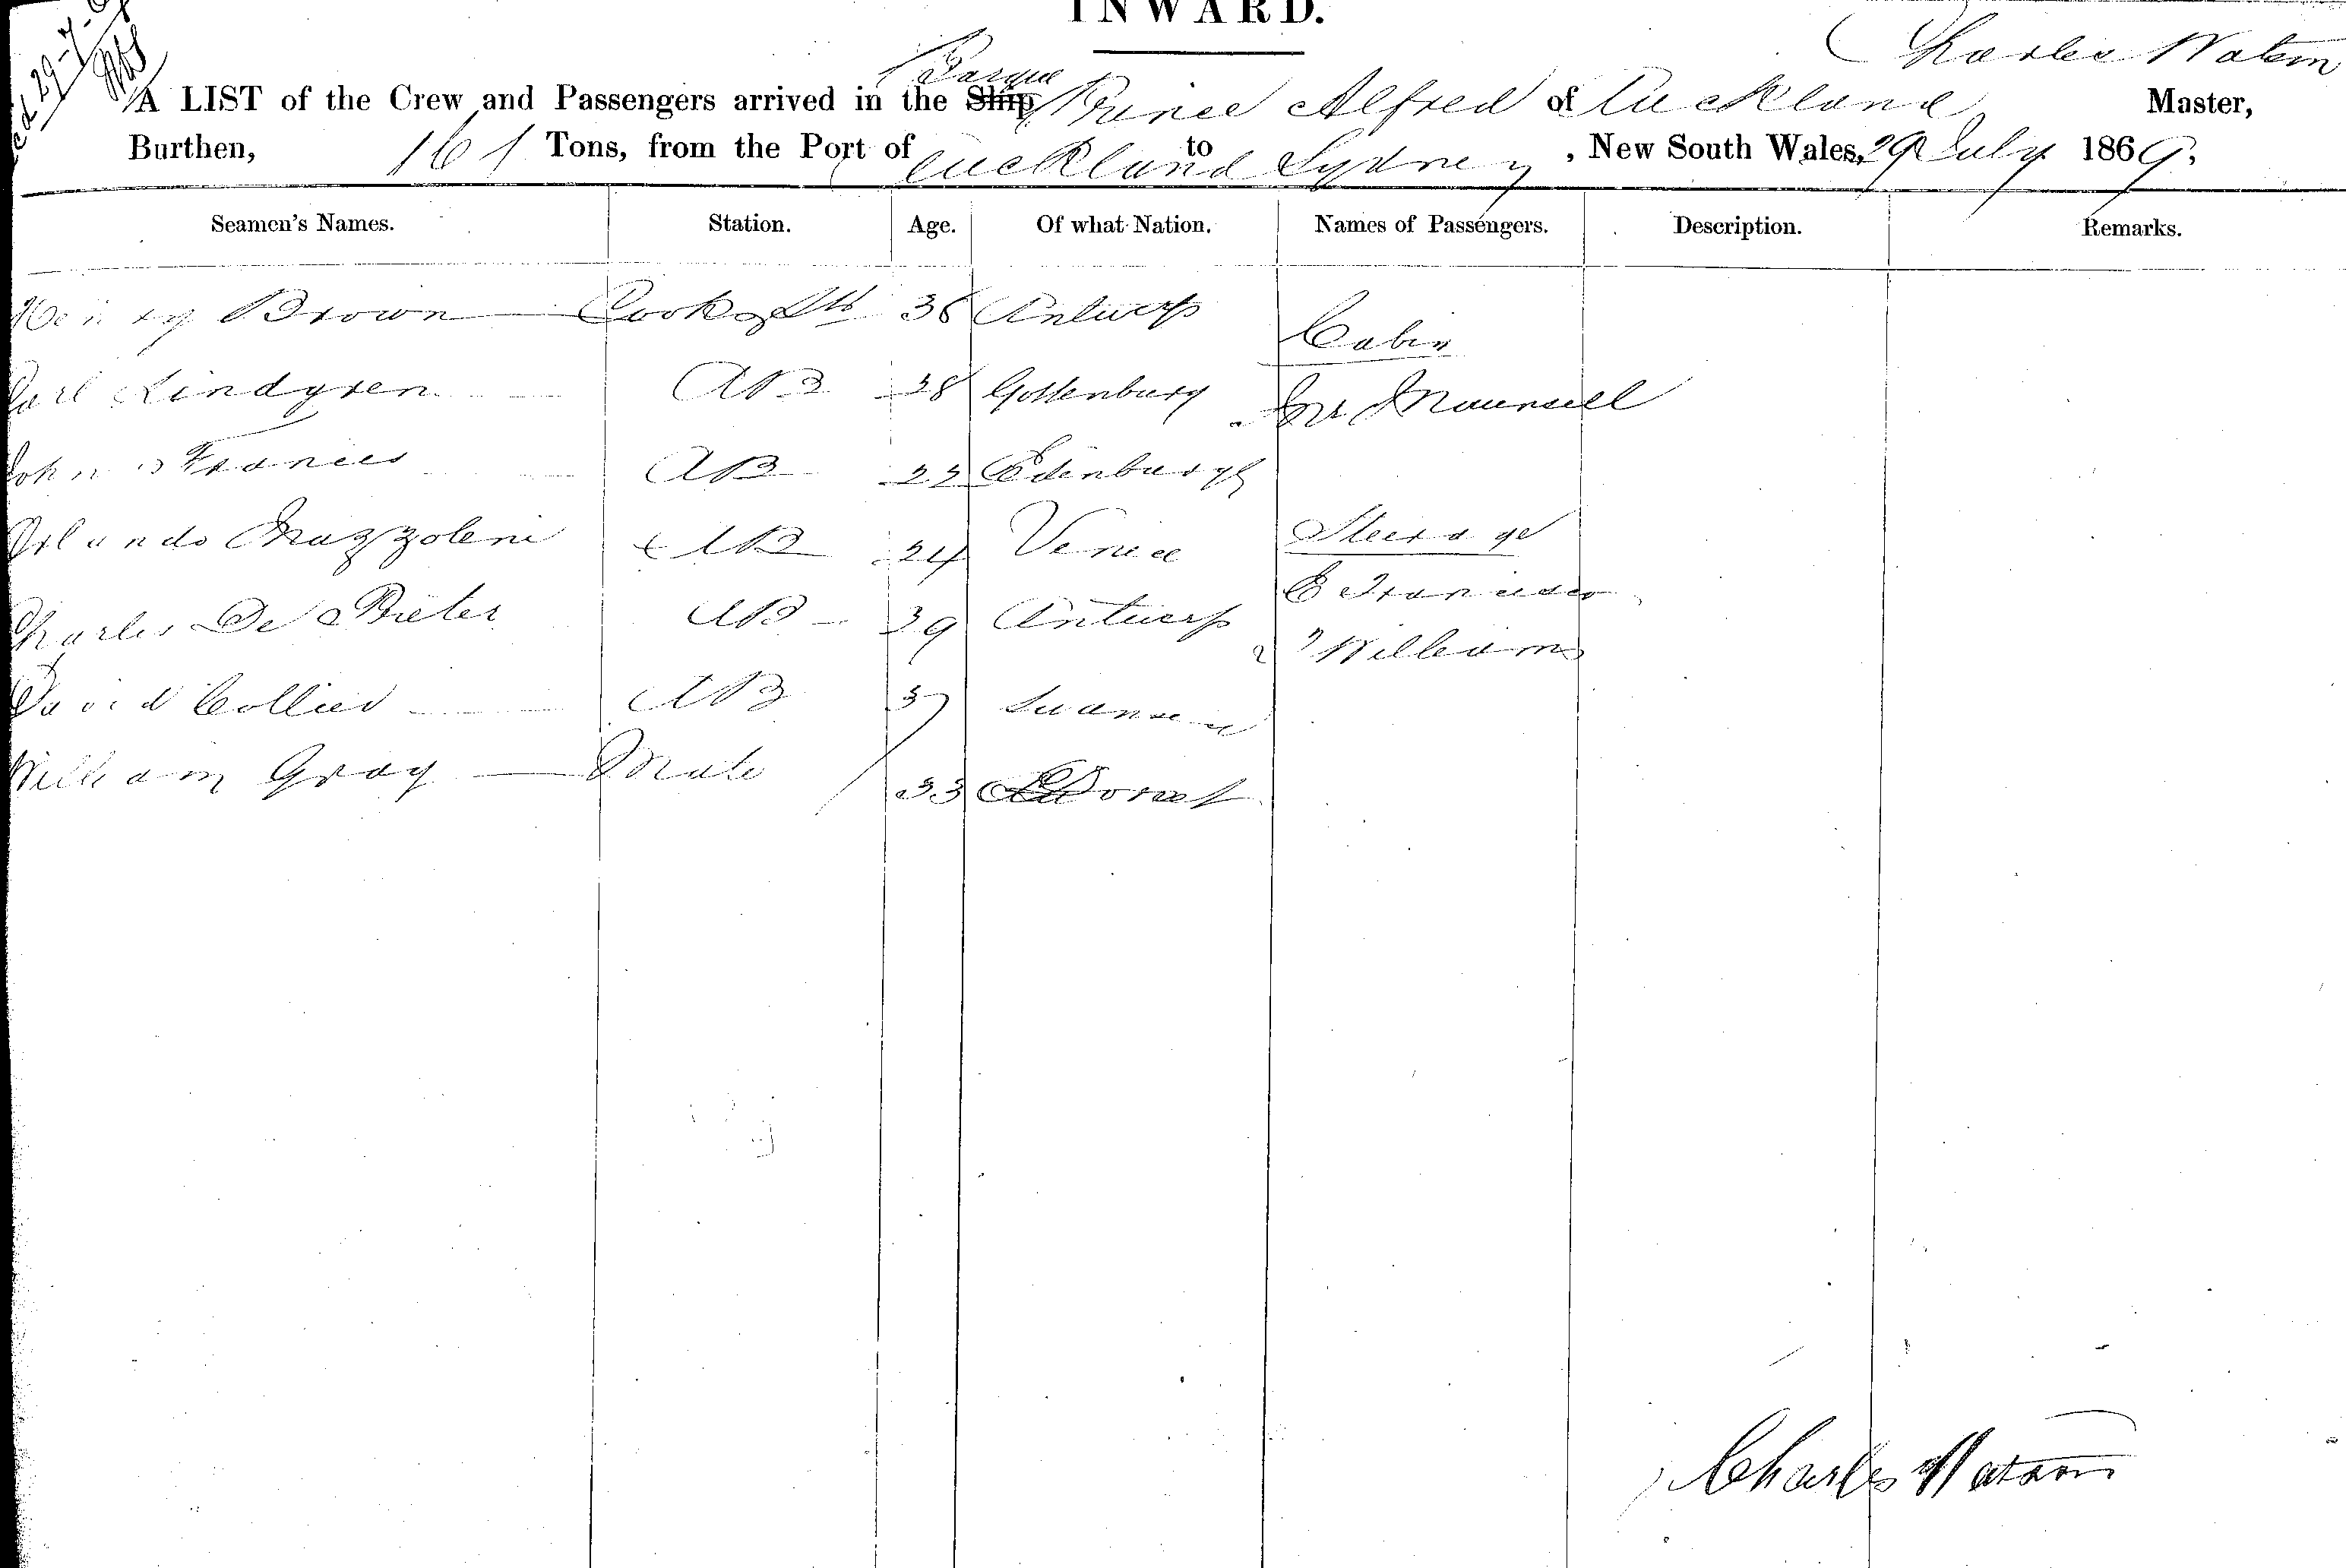 INWARD.
Charles Watson
Barque
A LIST of the Crew and Passengers arrived in the Ship Prince Alfred of Auckland Master,
Burthen, 161 Tons, from the Port of Auckland to Sydney, New South Wales, 29 July 1869.
Seamen's Names. Station. Age. Of what Nation. Names of Passengers. Description. Remarks.
Henry Brown Cook & Std 36 Antwerp
Cabin
Carl Lindgren AB 28 Gottenburg Mr Maunsell
John Francis AB 22 Edenburgh
Orlando Mazzoleni AB 24 Venice Steerage
Charles De Pieter AB 39 Antwerp E Francisco
2 " Williams
David Collier AB 37 Swansea
William Gray Mate 33 Dorset
Charles Watson